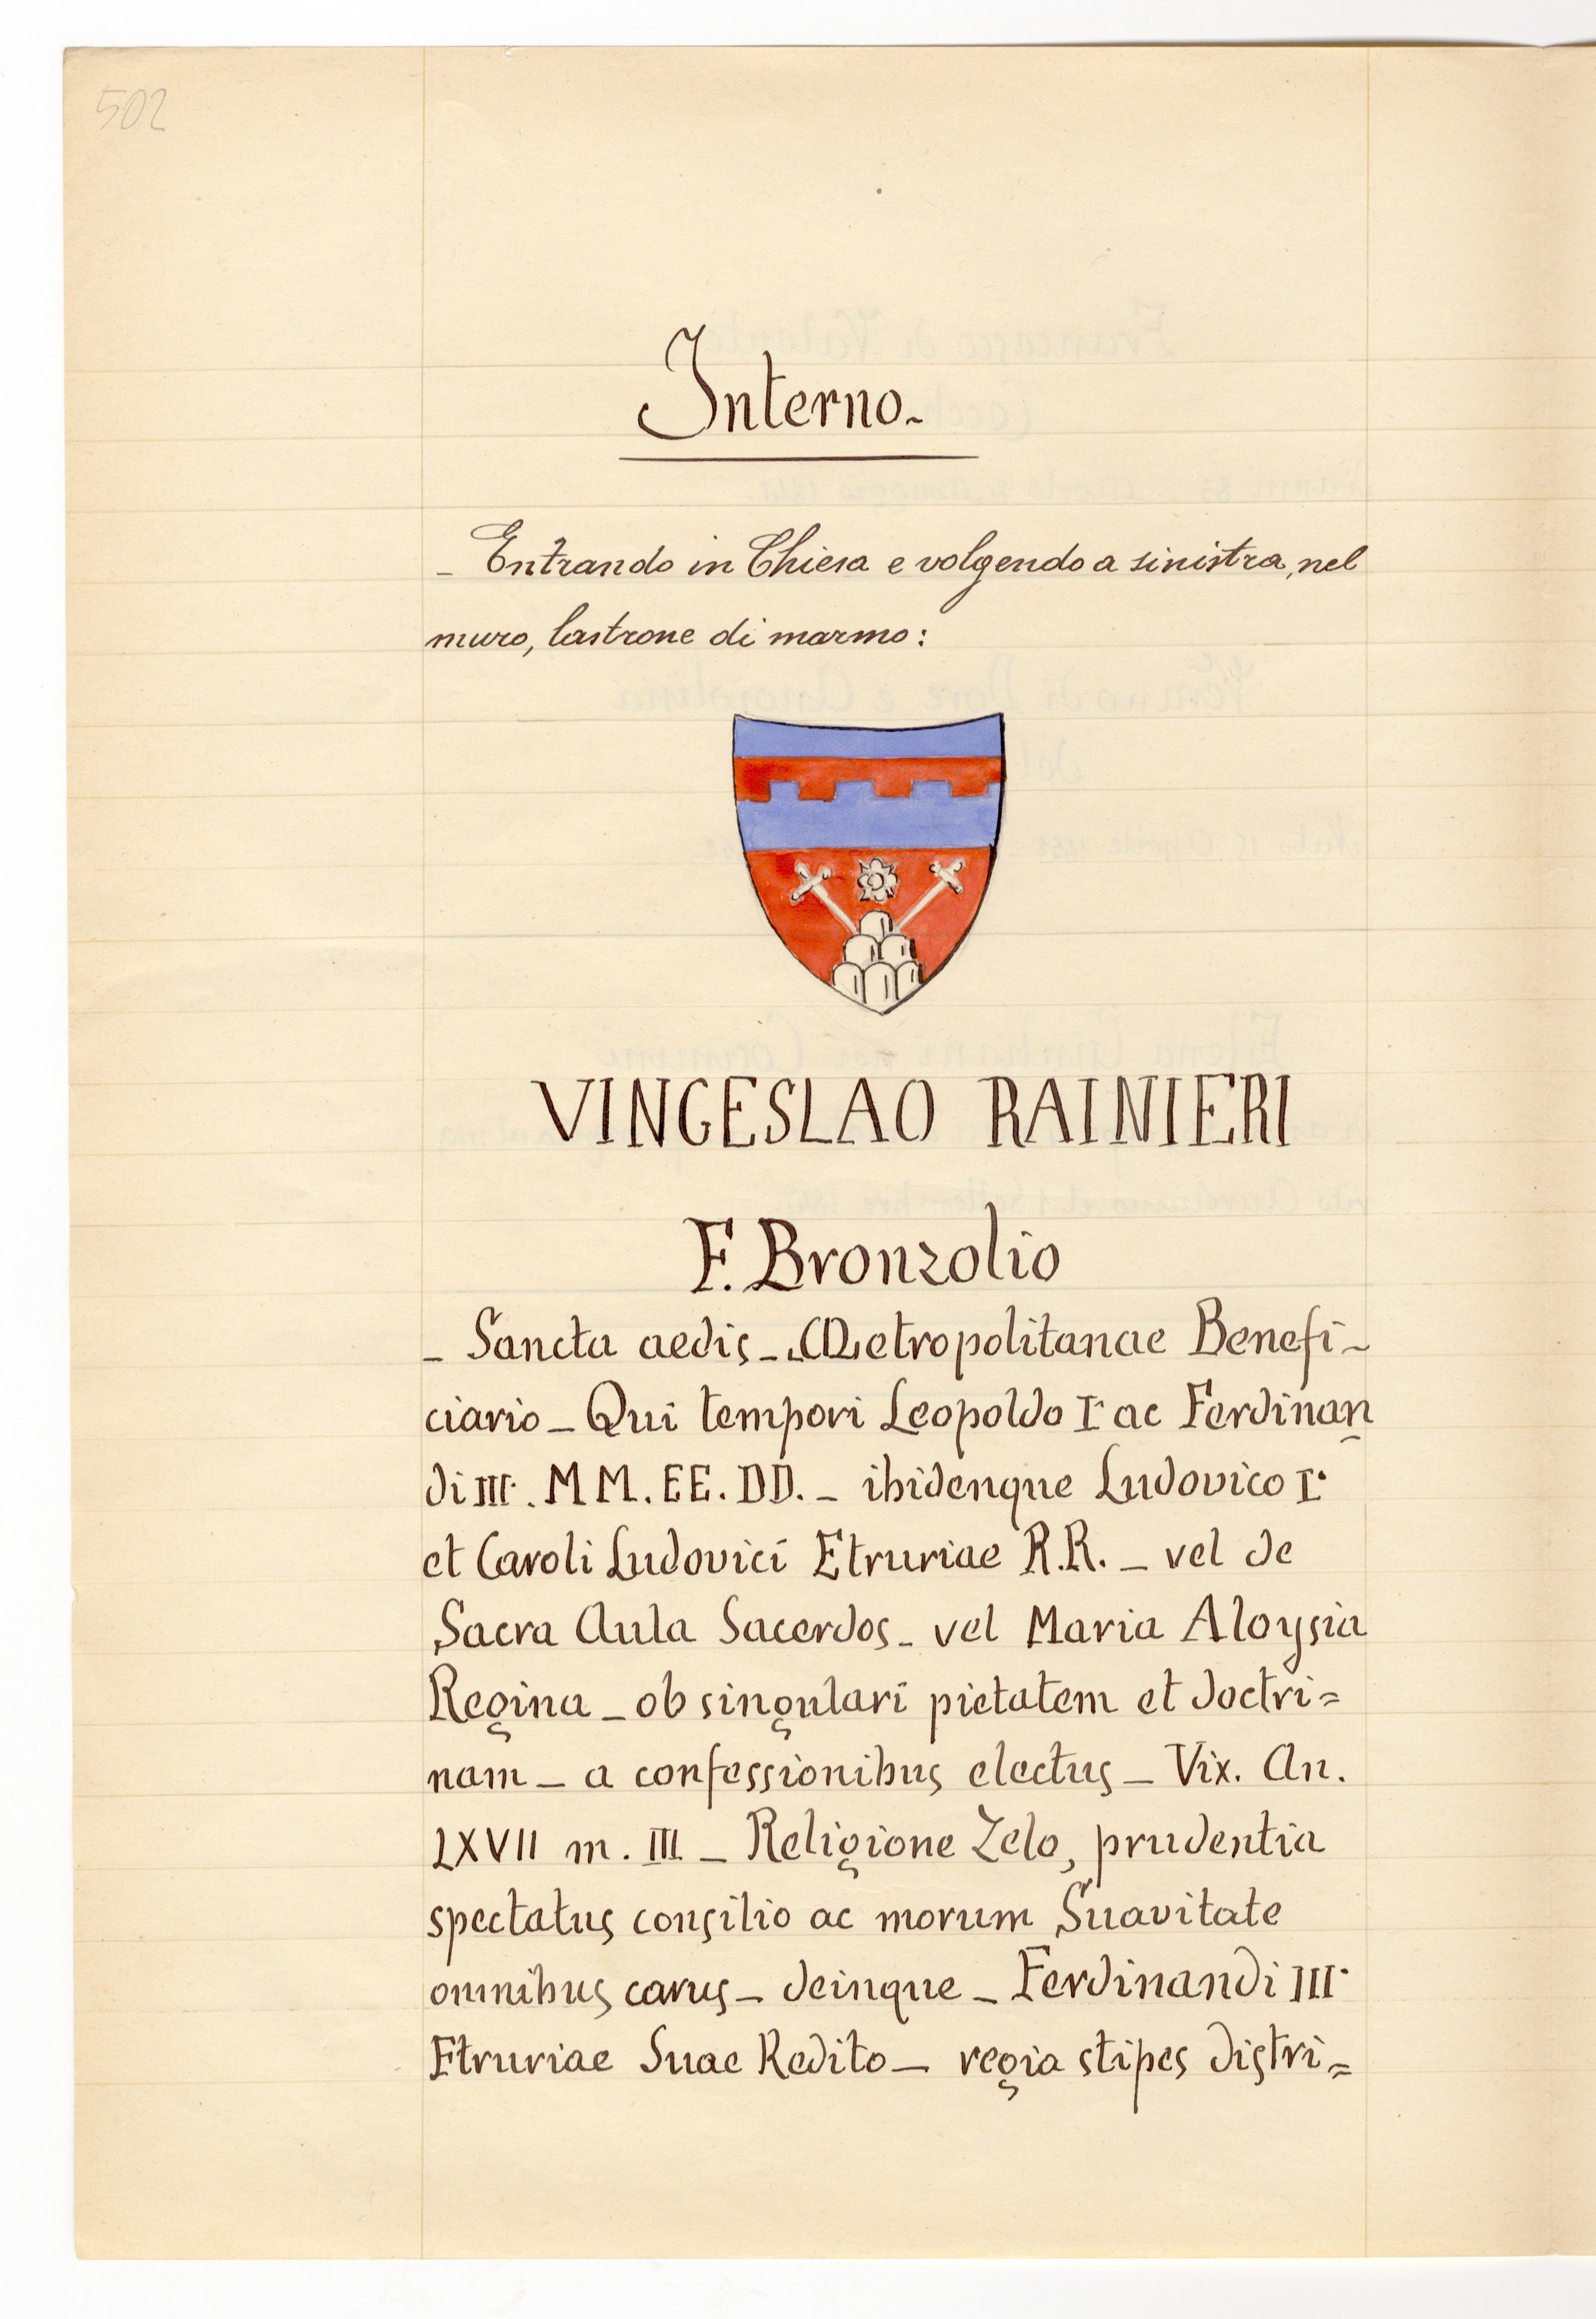 502
Interno.
_ Entrando in Chiesa e volgendo a sinistra, nel
muro, lastrone di marmo:
VINCESLAO RAINIERI
F. Bronzolio
_ Sancta aedis _ Metropolitanae Benefi-
ciario _ Qui tempori Leopoldo I° ac Ferdinan
di III°. MM. EE. DD. _ ibidenque Ludovico I°
et Caroli Ludovici Etruriae R.R. _ vel de
Sacra Aula Sacerdos _ vel Maria Aloysia
Regina _ ob singulari pietatem et doctri=
nam _ a confessionibus electus _ Vix. An.
LXVII m. III _ Religione Zelo, prudentia
spectatus consilio ac morum Suavitate
omnibus carus _ deinque _ Ferdinandi III°
Etruriae Suae Redito _ regia stipes distri=